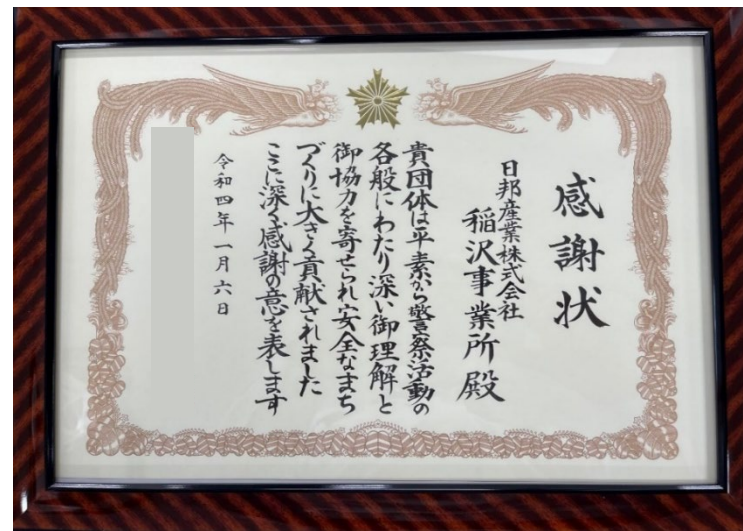 感謝状
日邦産業株式会社
稲沢事業所殿
貴団体は平素から警察活動の
各般にわたり深い御理解と
御協力を寄せられ安全なまち
づくりに大きく貢献されました
ここに深く感謝の意を表します
令和四年一月六日